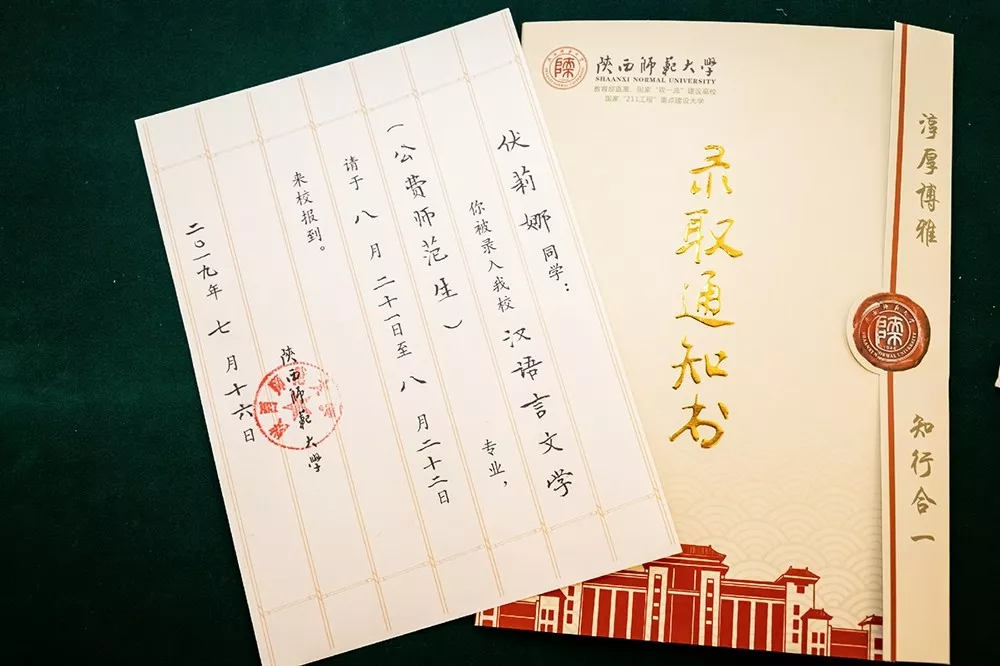 伏莉娜同学：
你被录入我校汉语言文学专业，
（公费师范生）
请于八月二十一日至八月二十二日
来校报到。
陕西师范大学
二〇一九年七月十六日
陕西师范大学
SHAANXI NORMAL UNIVERSITY
教育部直属、国家“双一流”建设高校
国家“211工程”重点建设大学
录取通知书
淳厚博雅
知行合一
陕
SHAANXI NORMAL UNIVERSITY